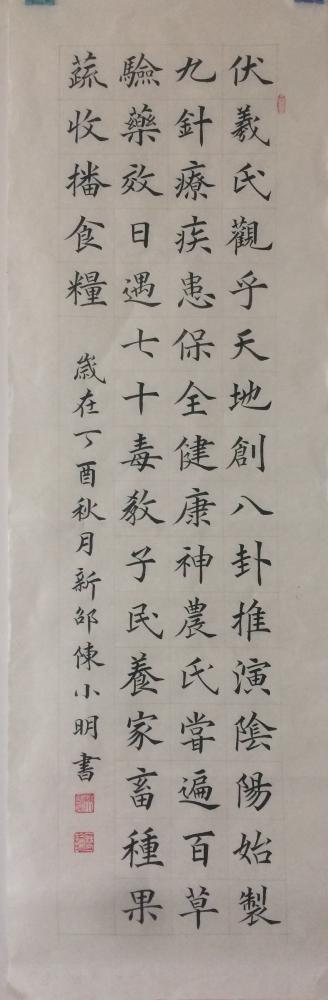 伏羲氏觀乎天地創八卦推演陰陽始製
九針療疾患保全健康神農氏嘗遍百草
驗藥效日遇七十毒教子民養家畜種果
蔬收播食糧
歲在丁酉秋月新邵陳小明書